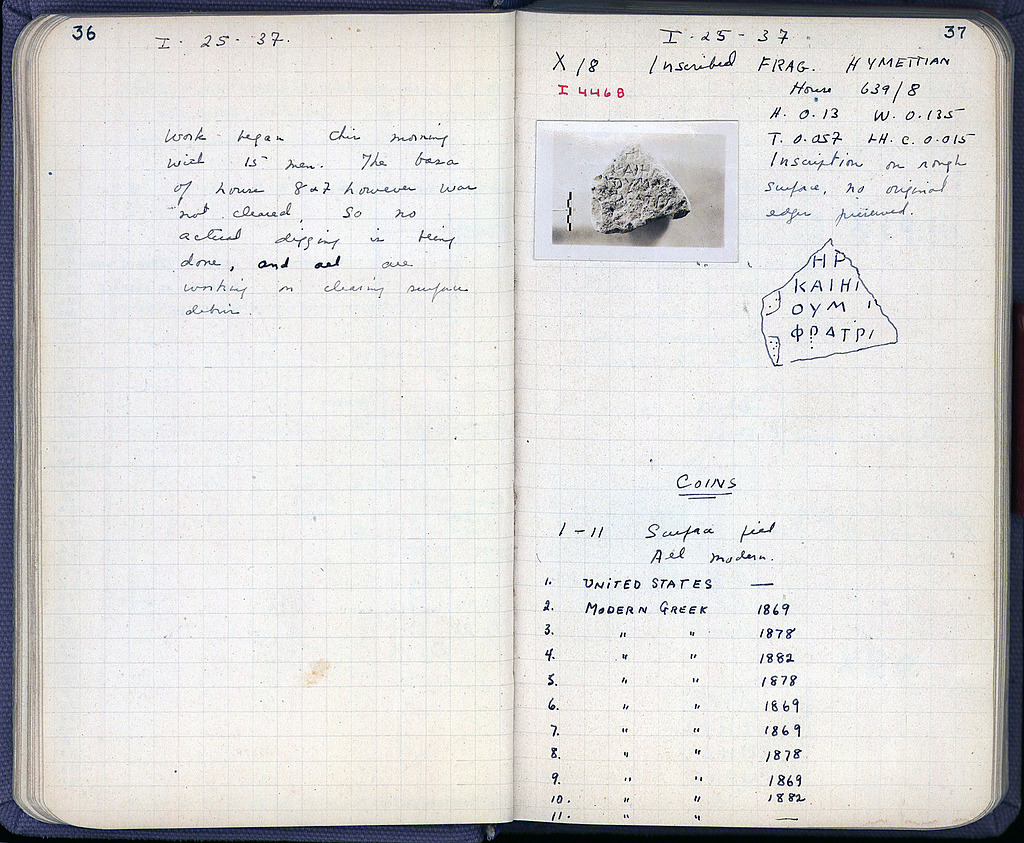 36
I · 25 - 37.
Work began this morning
with 15 men. The basa
of house 8 & 7 however was
not cleared, so no
actual digging is being
done, and all are
working on clearing surface
debris.
37
I · 25 - 37
X 18 Inscribed FRAG. HYMETTIAN
I 4468
House 639/8
H. 0.13 W. 0.135
T. 0.057 LH. c. 0.015
Inscription on rough
surface, no original
edges preserved.
ΗΡ
ΚΑΙΗΙ
ΟΥΜ Ι
ΦΡΑΤΡΙ
COINS
1 - 11 Surface fill
All modern.
1. UNITED STATES —
2. MODERN GREEK 1869
3. " " 1878
4. " " 1882
5. " " 1878
6. " " 1869
7. " " 1869
8. " " 1878
9. " " 1869
10. " " 1882
11. " " —